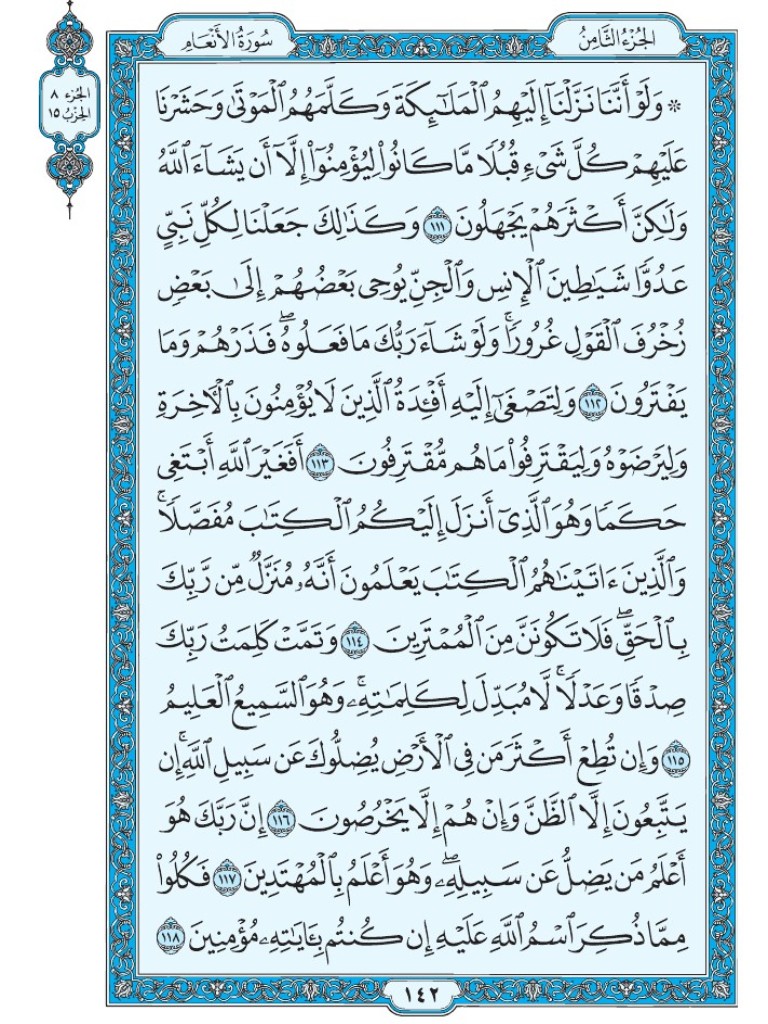 الجُزْءُ الثَّامِنُ
سُورَةُ الأَنْعَامِ
الجُزء ٨
الحِزبُ ١٥
۞ وَلَوْ أَنَّنَا نَزَّلْنَآ إِلَيْهِمُ ٱلْمَلَٰٓئِكَةَ وَكَلَّمَهُمُ ٱلْمَوْتَىٰ وَحَشَرْنَا
عَلَيْهِمْ كُلَّ شَىْءٍ قُبُلًا مَّا كَانُوا۟ لِيُؤْمِنُوٓا۟ إِلَّآ أَن يَشَآءَ ٱللَّهُ
وَلَٰكِنَّ أَكْثَرَهُمْ يَجْهَلُونَ ١١١ وَكَذَٰلِكَ جَعَلْنَا لِكُلِّ نَبِىٍّ
عَدُوًّا شَيَٰطِينَ ٱلْإِنسِ وَٱلْجِنِّ يُوحِى بَعْضُهُمْ إِلَىٰ بَعْضٍ
زُخْرُفَ ٱلْقَوْلِ غُرُورًا ۚ وَلَوْ شَآءَ رَبُّكَ مَا فَعَلُوهُ ۖ فَذَرْهُمْ وَمَا
يَفْتَرُونَ ١١٢ وَلِتَصْغَىٰٓ إِلَيْهِ أَفْـِٔدَةُ ٱلَّذِينَ لَا يُؤْمِنُونَ بِٱلْءَاخِرَةِ
وَلِيَرْضَوْهُ وَلِيَقْتَرِفُوا۟ مَا هُم مُّقْتَرِفُونَ ١١٣ أَفَغَيْرَ ٱللَّهِ أَبْتَغِى
حَكَمًا وَهُوَ ٱلَّذِىٓ أَنزَلَ إِلَيْكُمُ ٱلْكِتَٰبَ مُفَصَّلًا ۚ
وَٱلَّذِينَ ءَاتَيْنَٰهُمُ ٱلْكِتَٰبَ يَعْلَمُونَ أَنَّهُۥ مُنَزَّلٌ مِّن رَّبِّكَ
بِٱلْحَقِّ ۖ فَلَا تَكُونَنَّ مِنَ ٱلْمُمْتَرِينَ ١١٤ وَتَمَّتْ كَلِمَتُ رَبِّكَ
صِدْقًا وَعَدْلًا ۚ لَّا مُبَدِّلَ لِكَلِمَٰتِهِۦ ۚ وَهُوَ ٱلسَّمِيعُ ٱلْعَلِيمُ
١١٥ وَإِن تُطِعْ أَكْثَرَ مَن فِى ٱلْأَرْضِ يُضِلُّوكَ عَن سَبِيلِ ٱللَّهِ ۚ إِن
يَتَّبِعُونَ إِلَّا ٱلظَّنَّ وَإِنْ هُمْ إِلَّا يَخْرُصُونَ ١١٦ إِنَّ رَبَّكَ هُوَ
أَعْلَمُ مَن يَضِلُّ عَن سَبِيلِهِۦ ۖ وَهُوَ أَعْلَمُ بِٱلْمُهْتَدِينَ ١١٧ فَكُلُوا۟
مِمَّا ذُكِرَ ٱسْمُ ٱللَّهِ عَلَيْهِ إِن كُنتُم بِـَٔايَٰتِهِۦ مُؤْمِنِينَ ١١٨
١٤٢